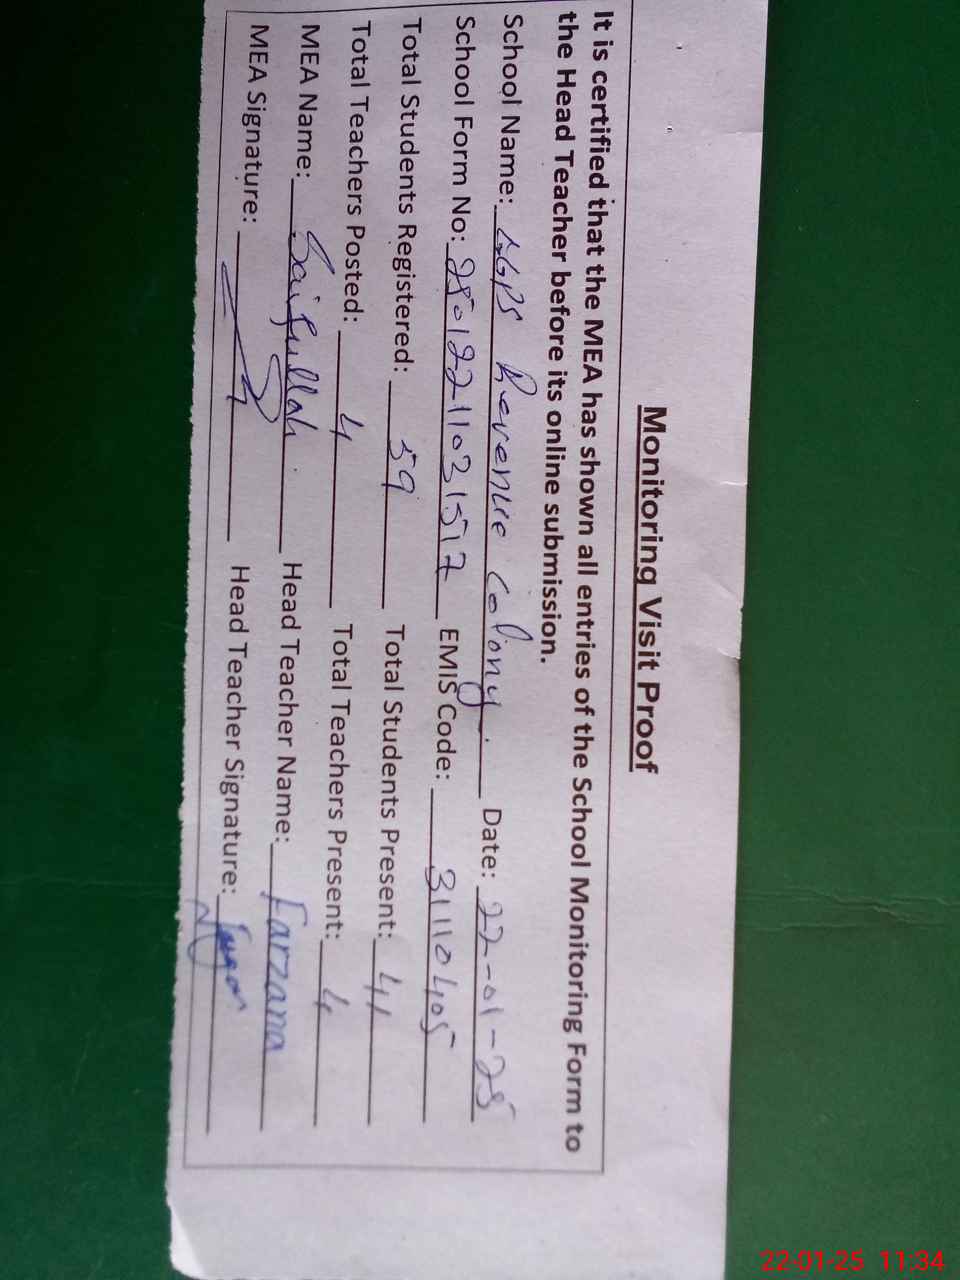 Monitoring Visit Proof
It is certified that the MEA has shown all entries of the School Monitoring Form to
the Head Teacher before its online submission.
School Name: GGPS Revenue Colony. Date: 22-01-25
School Form No: 25012211031517 EMIS Code: 31110405
Total Students Registered: 59 Total Students Present: 41
Total Teachers Posted: 4 Total Teachers Present: 4
MEA Name: Saifullah. Head Teacher Name: Farzana
MEA Signature: Head Teacher Signature:
22-01-25 11:34